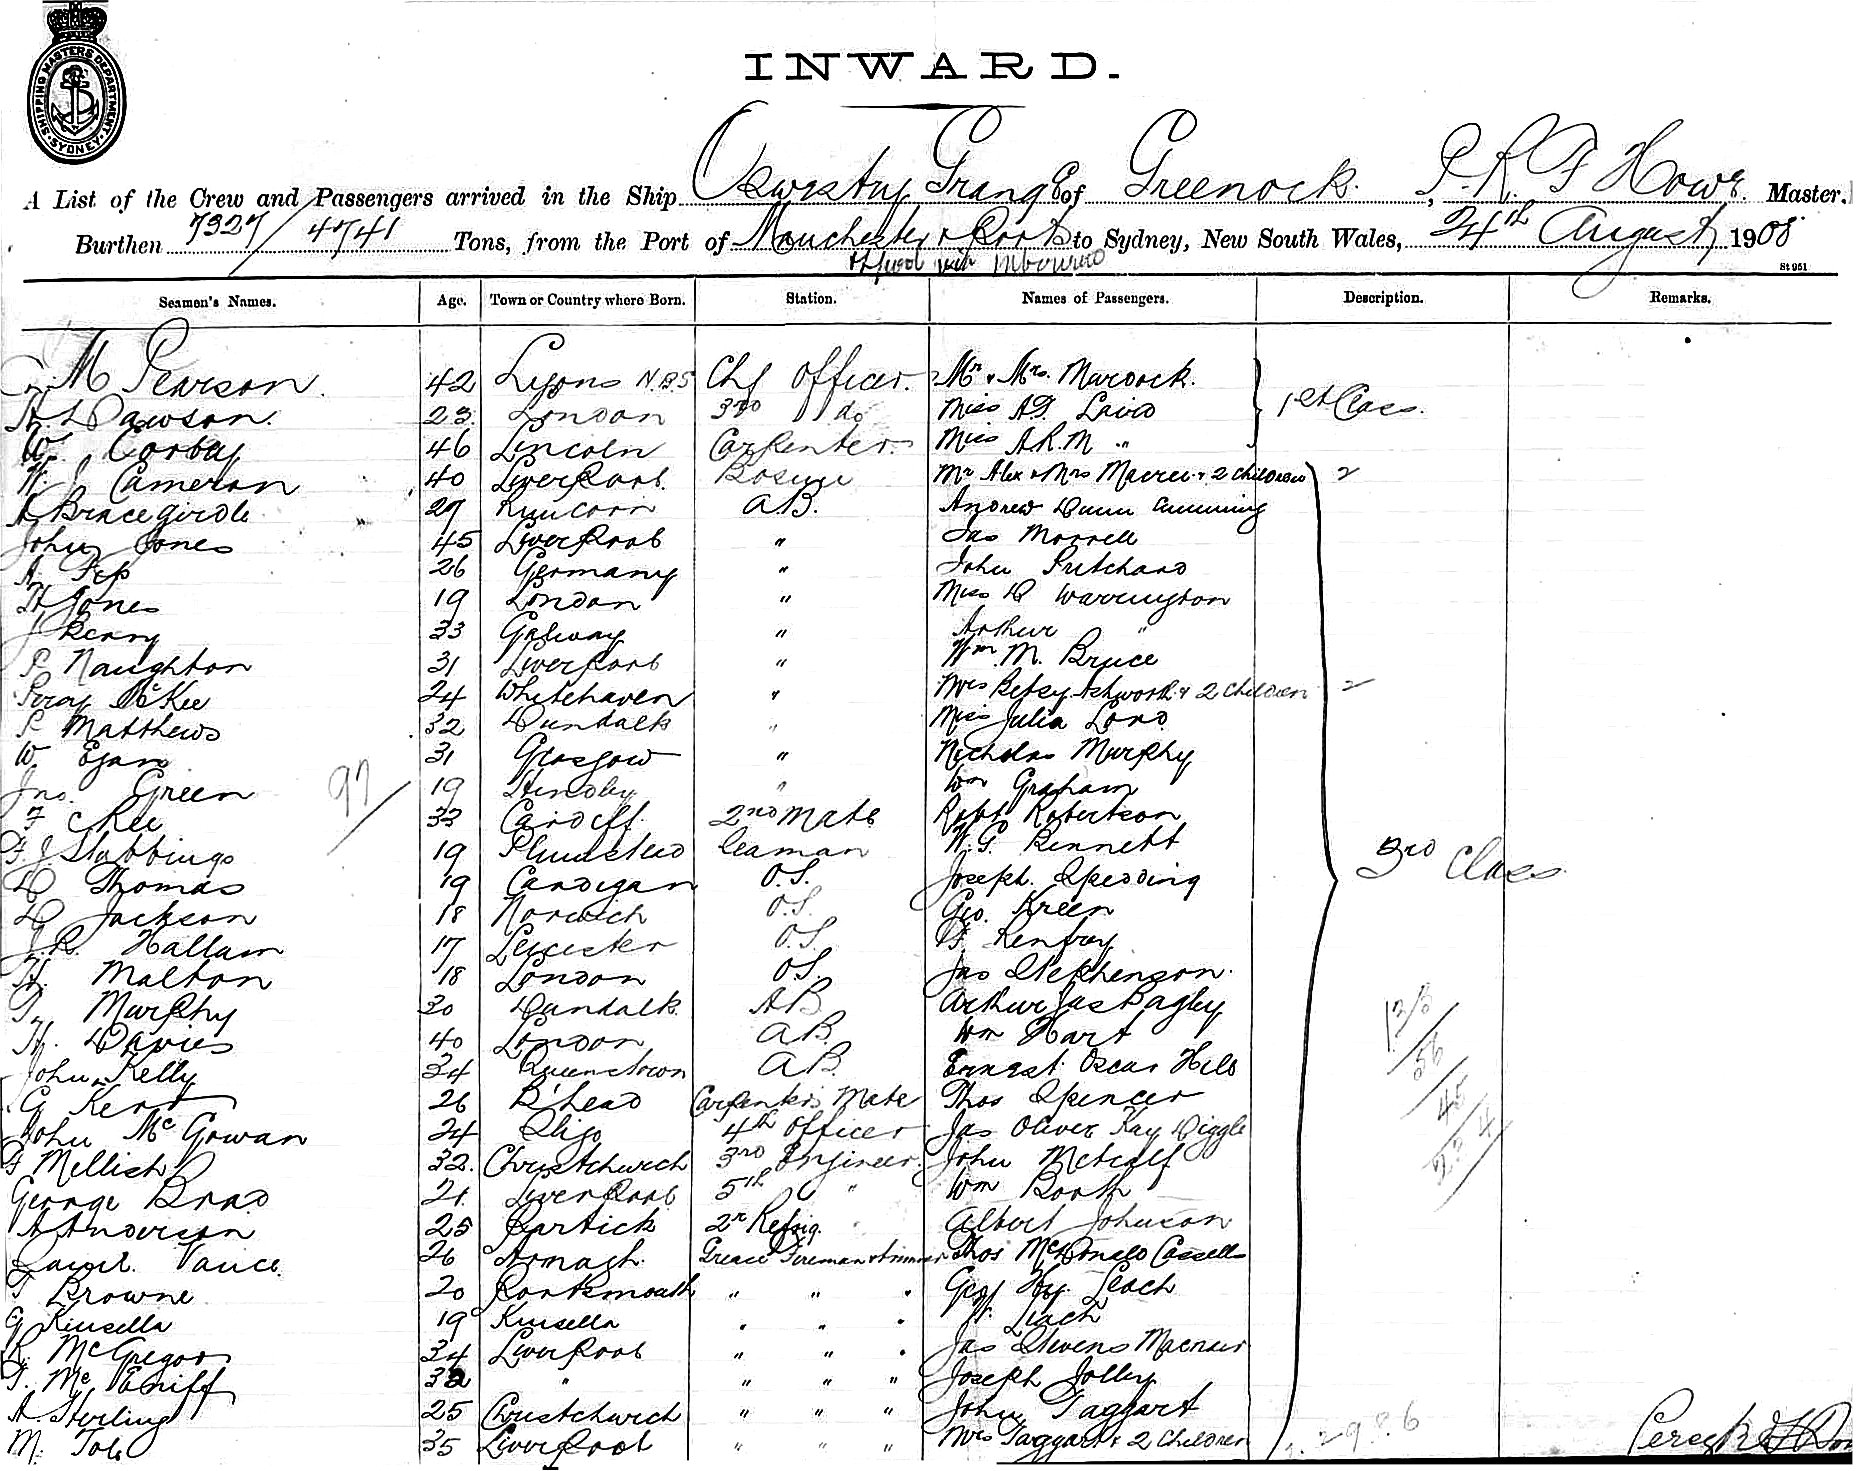 SHIPPING MASTERS DEPARTMENT · SYDNEY ·
INWARD.
A List of the Crew and Passengers arrived in the Ship Oswestry Grange of Greenock. P. R. F Howe Master,
Burthen 7327/4741 Tons, from the Port of Manchester & Ports to Sydney, New South Wales, 24th August 1908
St 951
Seamen's Names. Age. Town or Country where Born. Station. Names of Passengers. Description. Remarks.
M Pearson. 42 Lyons N.B.S Chf Officer. Mr & Mrs. Murdock.
H. Dawson. 23. London 3rd do Miss A.G. Laird 1st Class.
W. Corbay 46 Lincoln Carpenter. Miss A.R.M "
W. J Cameron 40 Liverpool. Bosun Mr Alex & Mrs Macrei & 2 Children 2
A Bracegirdle 29 Runcorn A.B. Andrew Dunn Cumming
John Jones 45 Liverpool " Jas Morrell
A. 26 Germany " John Pritchard
H Jones 19 London " Miss D Warrington
J Berry 33 Galway " Arthur "
P Naughton 31 Liverpool " Wm. M. Bruce
Percy McKee 24 Whitehaven " Mrs Betsy Ashworth & 2 Children 2
P Matthews 32 Dundalk " Miss Julia Lord
W Egan 31 Glasgow " Nicholas Murphy
97
Jno. Green 19 Hindley " Wm Graham
F C Ree 33 Cardiff. 2nd Mate Robt Robertson
F. J Stabbings 19 Plumstead Seaman W. G. Bennett
3rd Class
D Thomas 19 Cardigan O.S. Joseph Spedding
D Jackson 18 Norwich O.S. Geo. Green
J. R. Hallam 17 Leicester O.S. F. Renfray
H. Malton 18 London O.S. Jas Stephenson.
T. Murphy 30 Dundalk. AB Arthur Jas Bagley
H. Davies 40 London A B. Wm Hart
John Kelly 34 Queenstown A B. Ernest Oscar Hild
G Kent 26 B'head Carpenters Mate Thos Spencer
John McGowan 24 Sligo 4th Officer Jas Oliver Kay Diggle
F Mellish 32. Christchurch 3rd Engineer. John Metcalf
George Brad 21. Liverpool 5th " Wm Booth
A Anderson 25 Partick 2nd Refrig. " Albert Johnson
Saml. Vance. 26 Armagh. Greaser Fireman & trimmer Thos McDonald Cassells
T Browne 20 Portsmouth " " " Geo Hy. Leach
G Kinsella 19 Kinsella " " " H. Leach
R. McGregor 34 Liverpool " " " Jas Stevens Macnair
T. Mc 32 " " " " Joseph Jolley
A. Sterling 25 Christchurch " " " John Taggart
M. Tobi 35 Liverpool " " " Mrs Taggart & 2 Children